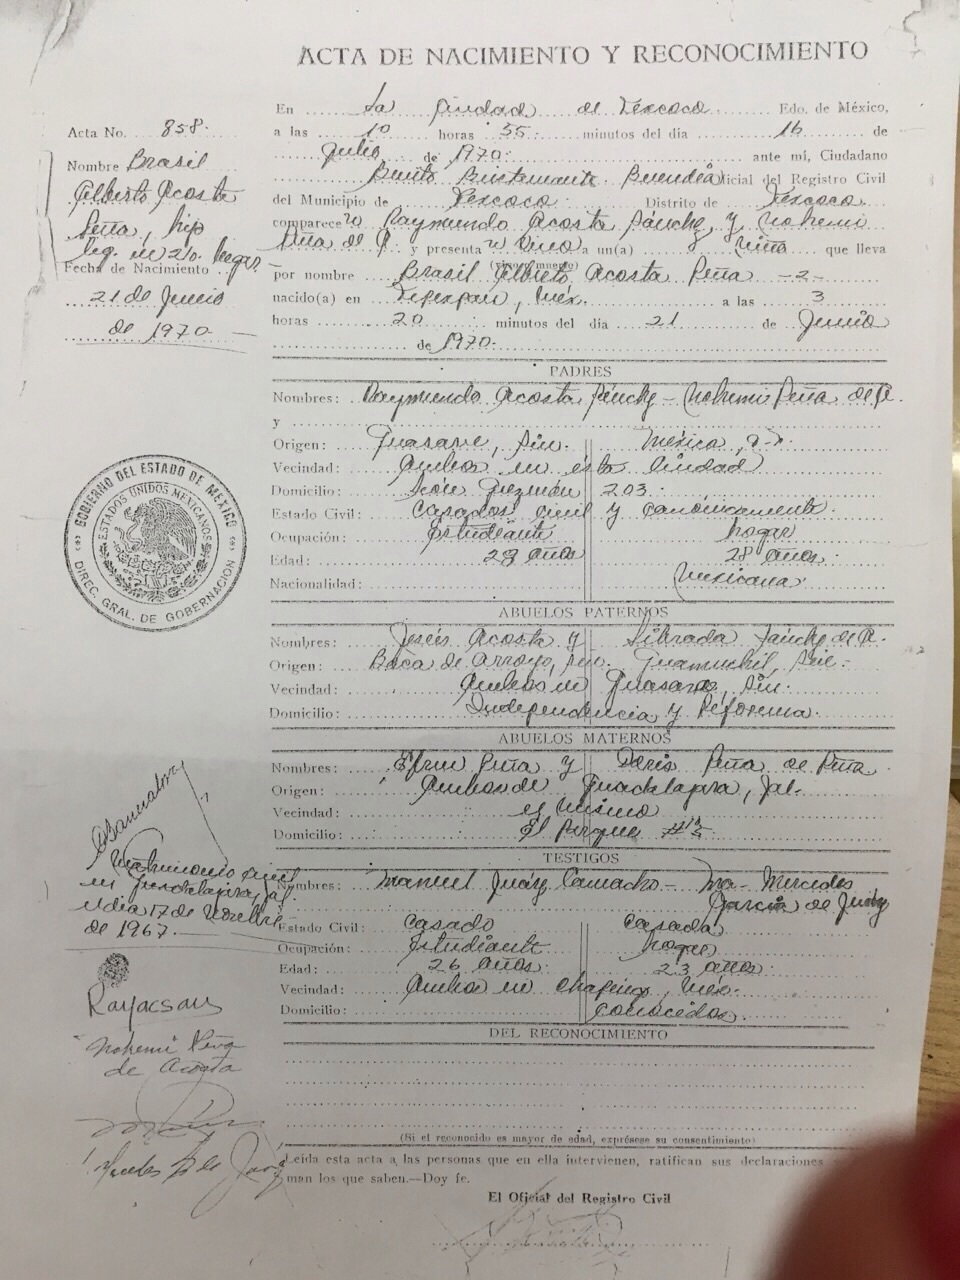 ACTA DE NACIMIENTO Y RECONOCIMIENTO
Acta No. 858.
Nombre Brasil
Alberto Acosta
Peña, hijo
leg. en 2/o.
Fecha de Nacimiento
21 de Junio
de 1970.
En la Ciudad de Texcoco Edo. de México,
a las 10 horas 55 minutos del día 16 de
Julio de 1970. ante mí, Ciudadano
Benito Bustamante Buendía Oficial del Registro Civil
del Municipio de Texcoco Distrito de Texcoco
comparece Raymundo Acosta Sánchez y Nohemi
Peña de A. y presenta vivo a un(a) niño que lleva
(vivo o muerto)
por nombre Brasil Alberto Acosta Peña -2-
nacido(a) en Tepexpan, Méx. a las 3
horas 20 minutos del día 21 de Junio
de 1970.
PADRES
Nombres: Raymundo Acosta Sánchez - Nohemi Peña de A.
y
Origen: Guasave, Sin. México,
Vecindad: Ambos en esta Ciudad
Domicilio: León Guzmán 203.
Estado Civil: Casados civil y canónicamente.
Ocupación: Estudiante hogar
Edad: 29 años 28 años.
Nacionalidad: Mexicana
ABUELOS PATERNOS
Nombres: Jesús Acosta y Librada Sánchez de A.
Origen: Boca de Arroyo, Sin. Guamuchil, Sin.
Vecindad: Ambos en Guasave, Sin.
Domicilio: Independencia y Reforma.
ABUELOS MATERNOS
Nombres: Efren Peña y Peña de Peña
Origen: Ambos de Guadalajara, Jal.
Vecindad: el mismo
Domicilio: El Parque
TESTIGOS
Nombres: Manuel Juárez Camacho - Ma. Mercedes
García de Juárez
Estado Civil: Casado Casada
Ocupación: Estudiante hogar
Edad: 26 años. 23 años.
Vecindad: Ambos en Chapingo, Méx.
Domicilio: Conocidos.
DEL RECONOCIMIENTO
(Si el reconocido es mayor de edad, exprésese su consentimiento)
Leída esta acta a las personas que en ella intervienen, ratifican sus declaraciones
man los que saben.—Doy fe.
El Oficial del Registro Civil
GOBIERNO DEL ESTADO DE MEXICO
ESTADOS UNIDOS MEXICANOS
DIREC. GRAL. DE GOBERNACION
Matrimonio civil
en Guadalajara, Jal.
el día 17 de
de 1967.
Rayacsan
Nohemi Peña
de Acosta